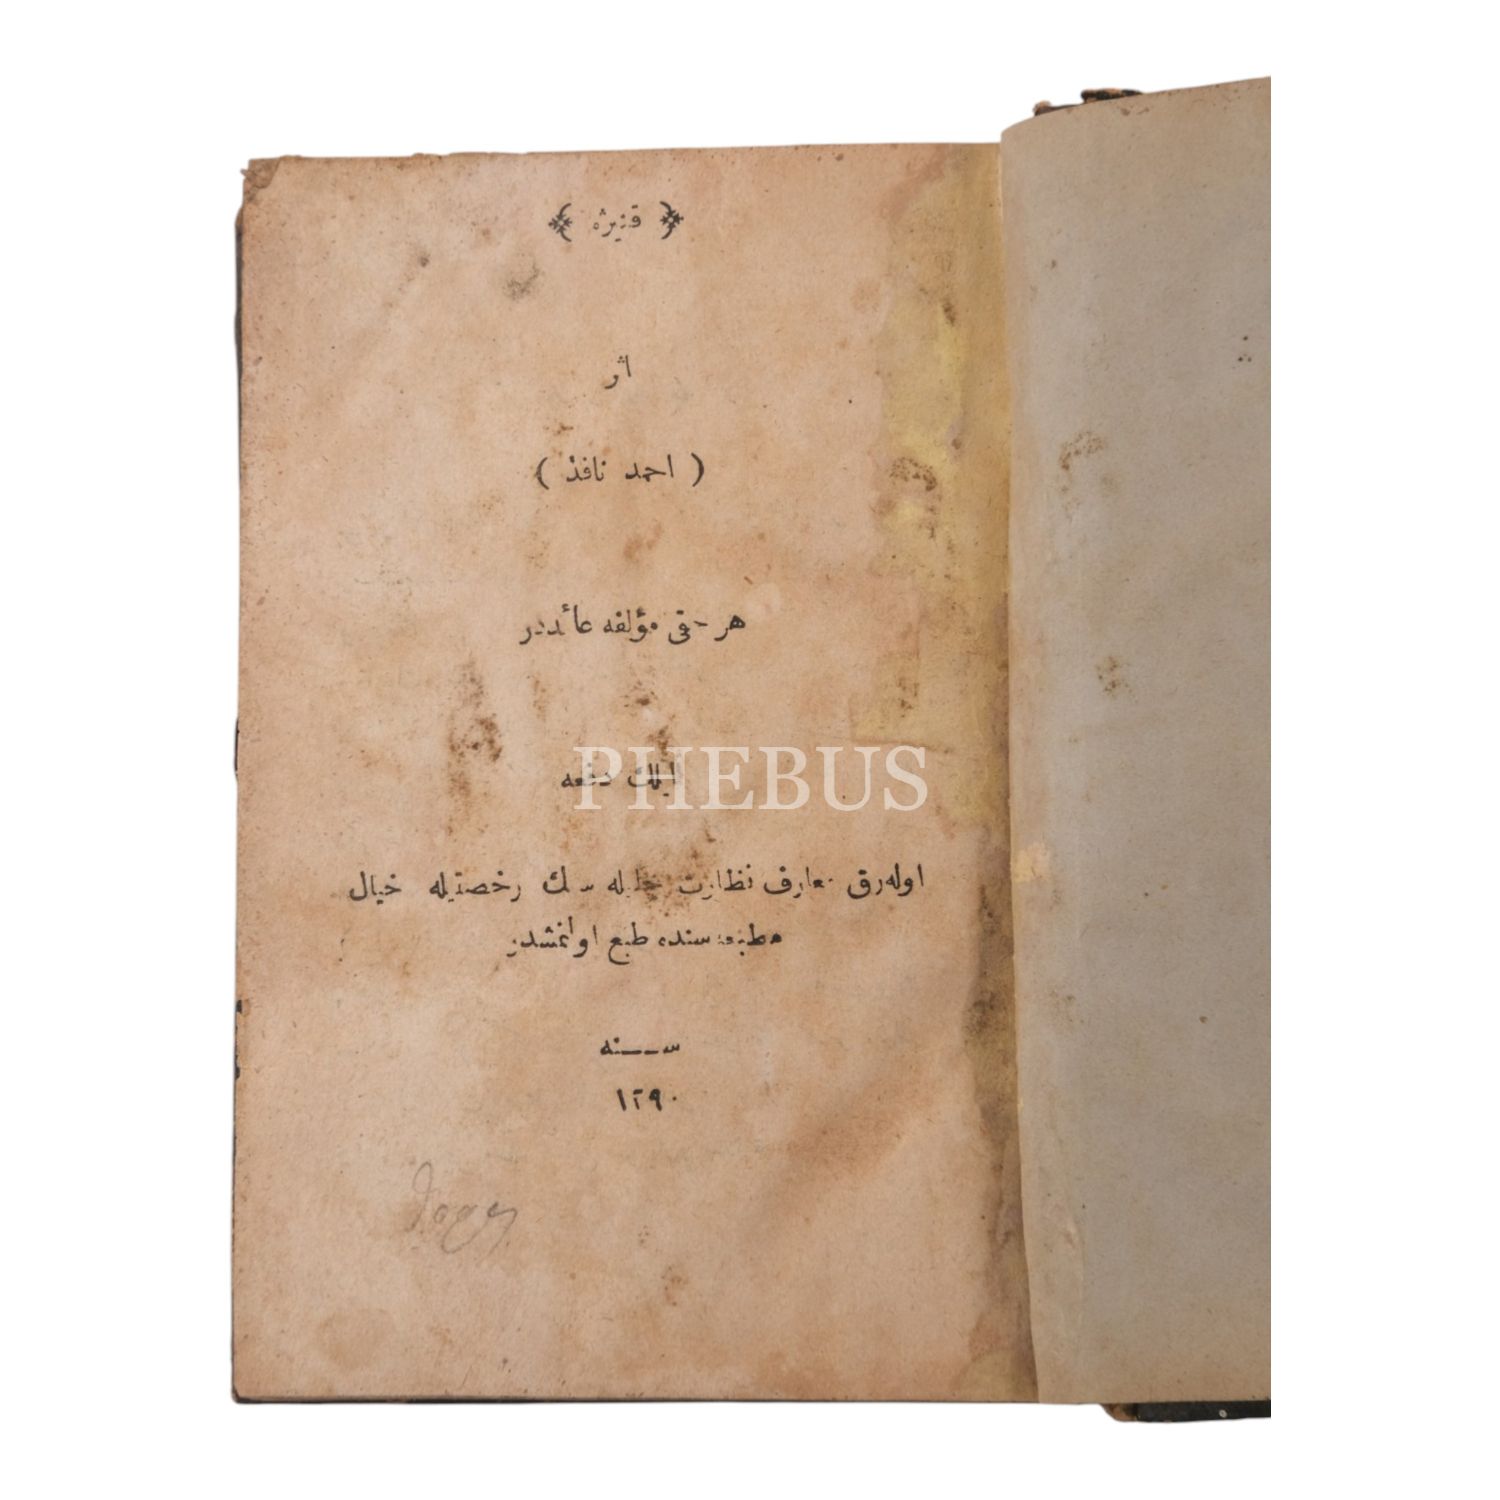 ﴿ قنیژه ﴾
اثر
( احمد نافذ )
هر حقی مؤلفه عائددر
ایلك دفعه
PHEBUS
اوله‌رق معارف نظارت جلیله سنك رخصتیله خیال
مطبعه سنده طبع اولنمشدر
سنه
١٢٩٠